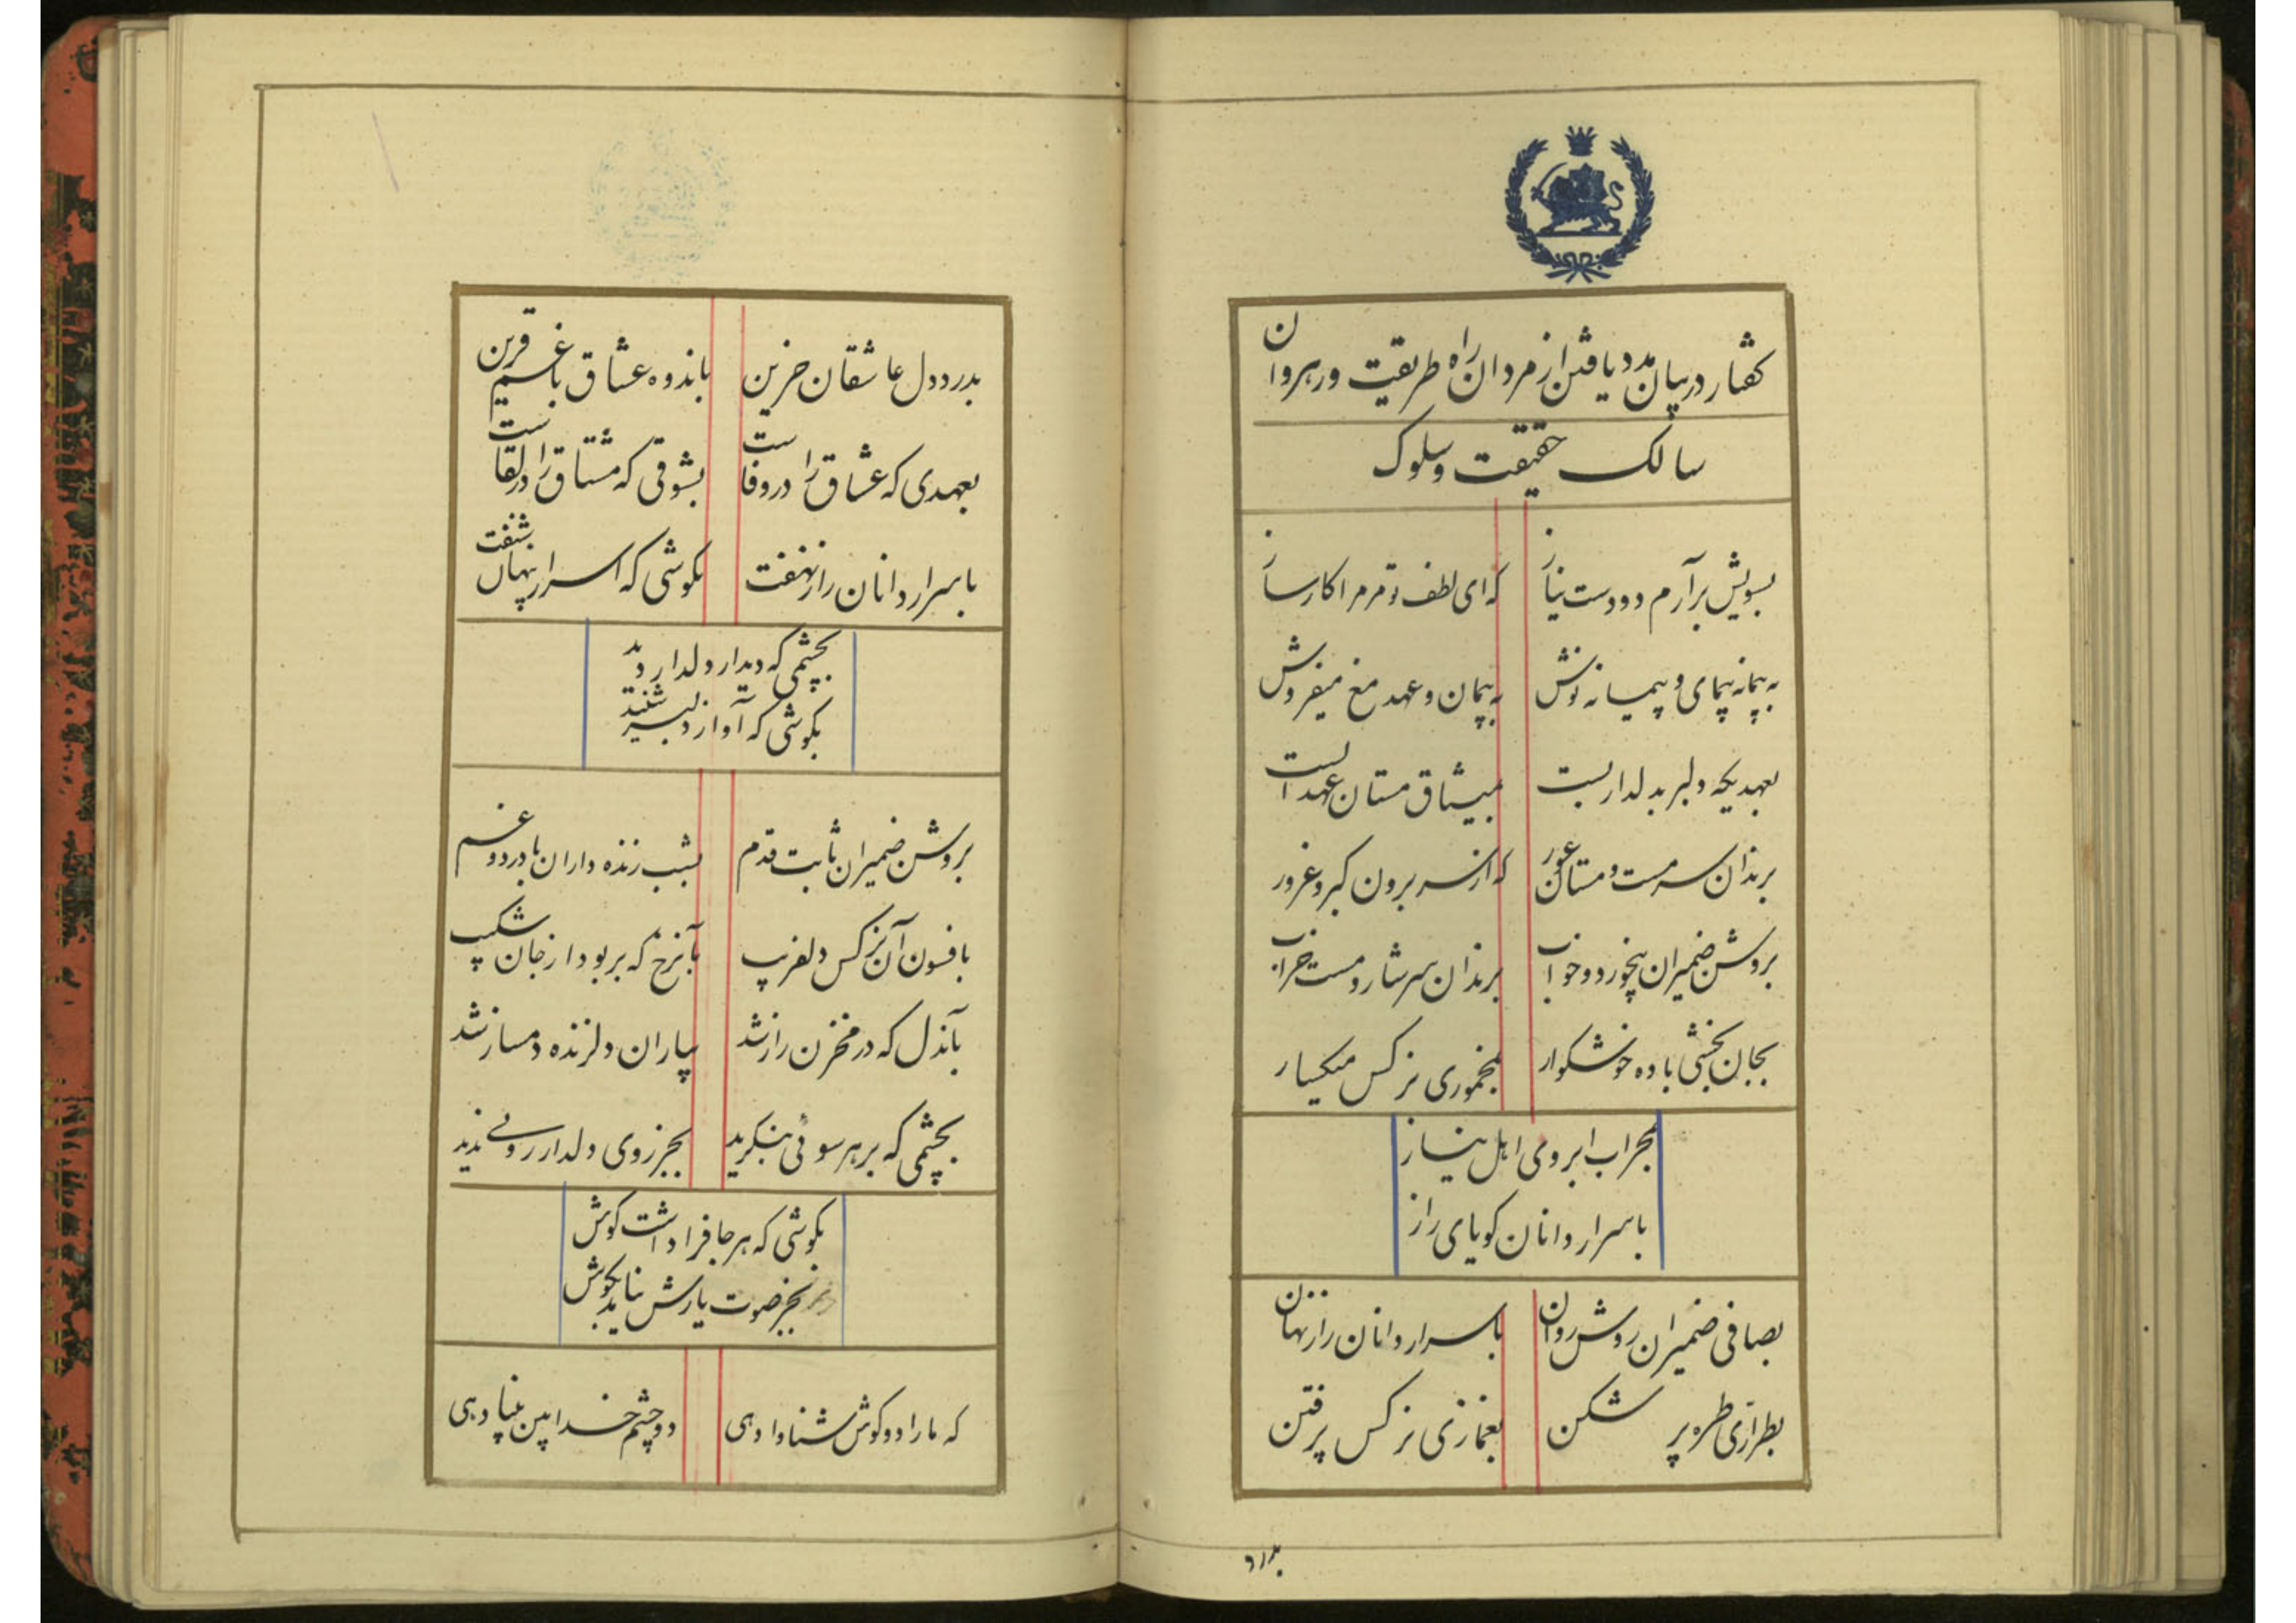 گفتار در بیان مدد یافتن از مردان راه طریقت و رهروان
سالک حقیقت و سلوک
بسویش برآرم دو دست نیاز
که ای لطف تو مر مرا کارساز
به پیمانه پیمای و پیمانه نوش
به پیمان و عهد مغ میفروش
بعهدیکه دلبر بدلدار بست
بمیثاق مستان عهد الست
برندان سرمست و مستان عور
که از سر برون کبر و غرور
بروشن ضمیران بیخورد و خواب
برندان سرشار و مست خراب
بجان بخشی باده خوشکوار
بمخموری نرکس میکسار
بمحراب ابروی اهل نیاز
باسرار دانان کویای راز
بصافی ضمیران روشن روان
باسرار دانان راز نهان
بطراری طره پر شکن
بغمازی نرکس پر فتن
بدرد
بدرد دل عاشقان حزین
باندوه عشاق با غم قرین
بعهدی که عشاق را در وفاست
بشوقی که مشتاق را در لقاست
باسرار دانان راز نهفت
بکوشی که اسرار پنهان شنفت
بچشمی که دیدار دلدار دید
بکوشی که آواز دلبر شنید
بروشن ضمیران ثابت قدم
بشب زنده داران با درد و غم
بافسون آن نرکس دلفریب
بآنرخ که بربود از جان شکیب
بآندل که در مخزن راز شد
بیاران دلزنده دمساز شد
بچشمی که بر هر سوئی بنکرید
بجز روی دلدار روئی ندید
بکوشی که هر جا فرا داشت کوش
بجز صوت یارش نیاید بکوش
که ما را دو کوش شناوا دهی
دو چشم خدا بین بینا دهی